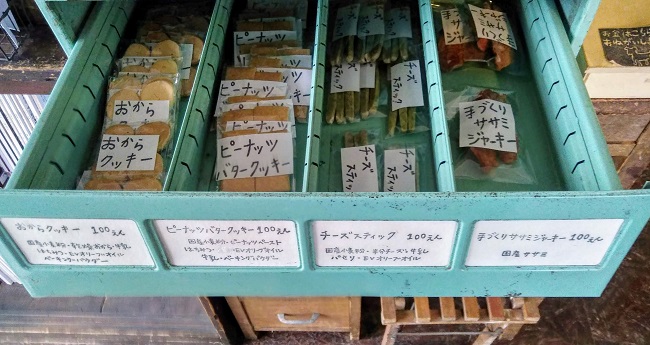 おから
おから
クッキー
ピーナッツ
ピーナッツ
ピーナッツ
バタークッキー
チーズ
スティック
チーズ
チーズ
手づくり
ササミ
ジャーキー
手づくり
ササミ
ジャーキー
おからクッキー 100えん
ピーナッツバタークッキー 100えん
国産小麦粉・ピーナッツペースト
はちみつ・EVオリーブオイル
牛乳・ベーキングパウダー
チーズスティック 100えん
国産小麦粉・粉チーズ・牛乳
パセリ・EVオリーブオイル
手づくりササミジャーキー 100えん
国産ササミ
はちみつ・EVオリーブオイル
ベーキングパウダー